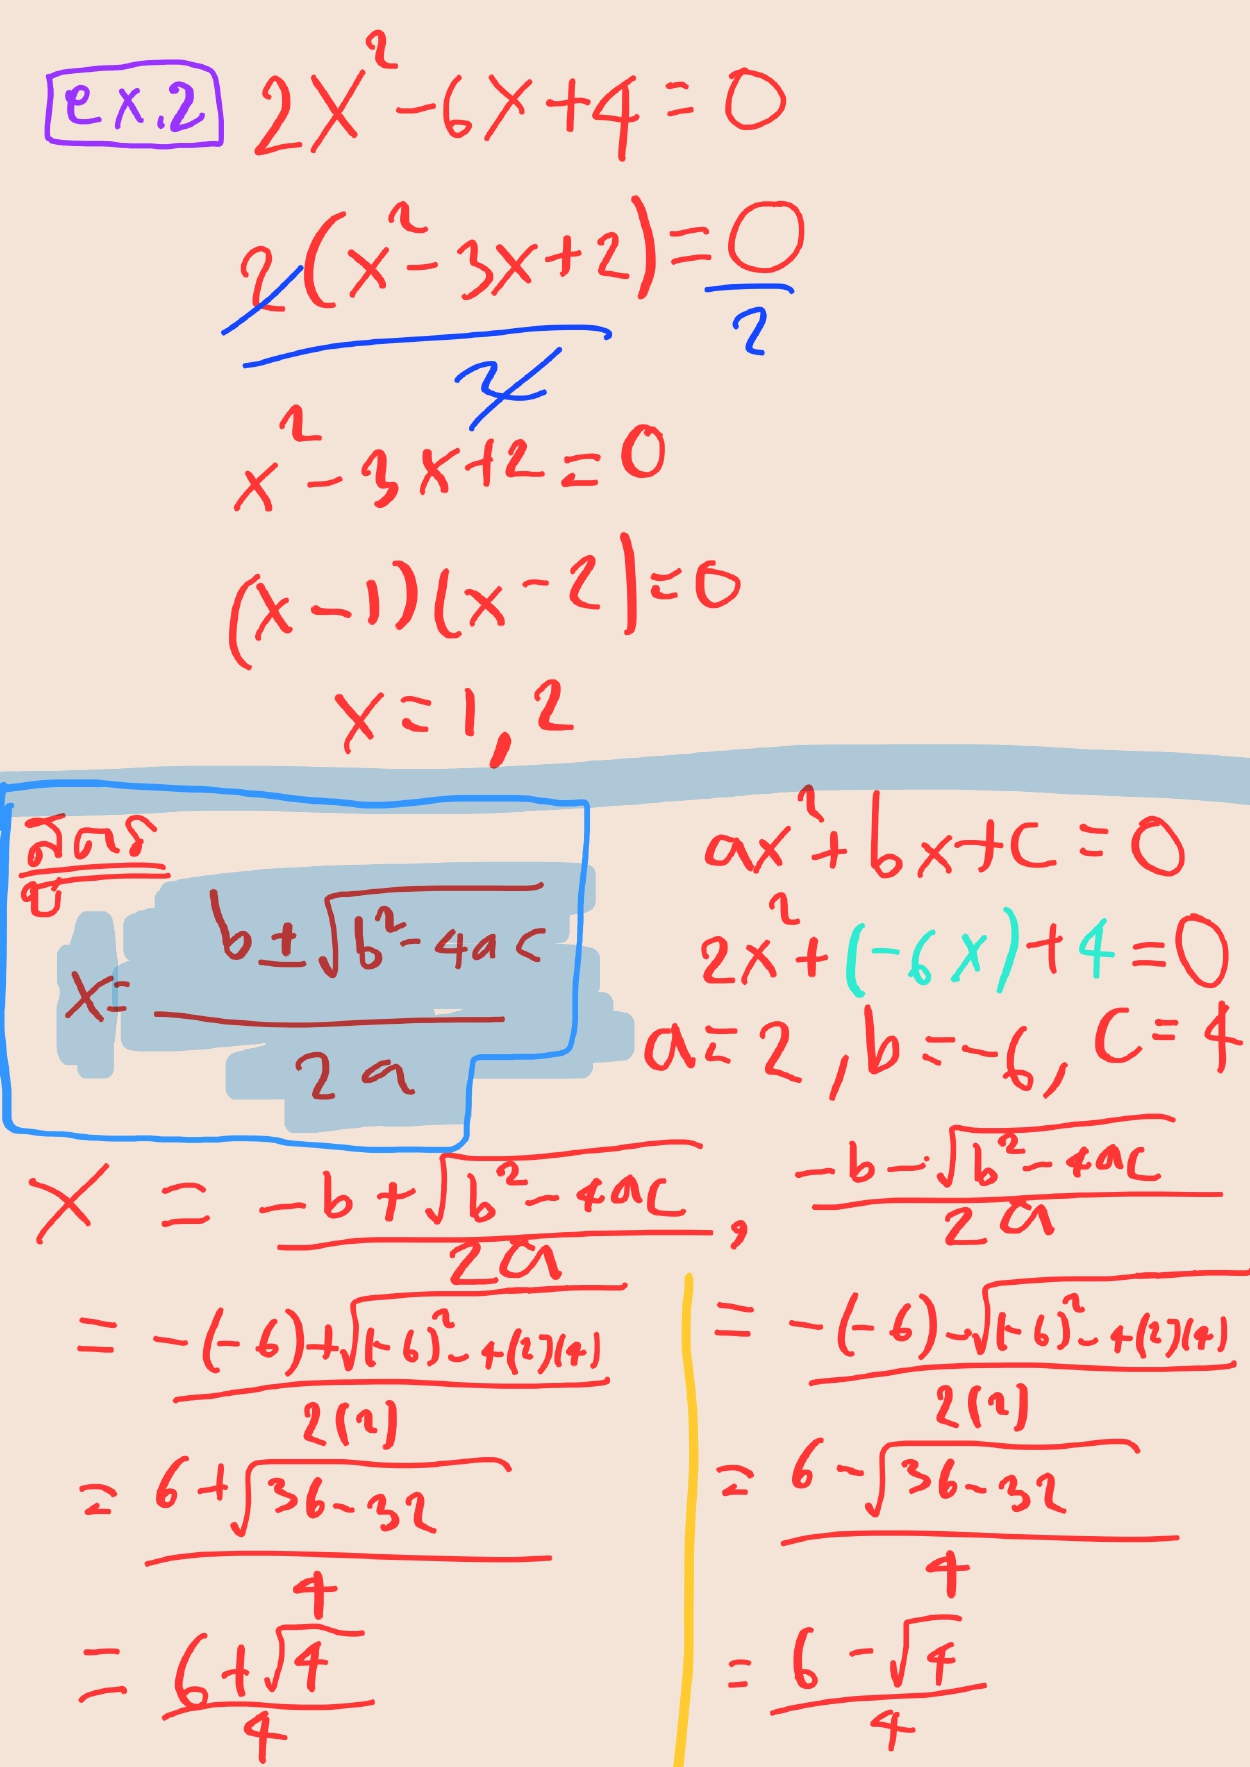 ex.2 2x²-6x+4=0
2(x²-3x+2)=0
2 2
x²-3x+2=0
(x-1)(x-2)=0
x=1,2
สูตร
x= b±√b²-4ac
2a
ax²+bx+c=0
2x²+(-6x)+4=0
a=2, b=-6, c=4
x = -b+√b²-4ac , -b-√b²-4ac
2a 2a
= -(-6)+√(-6)²-4(2)(4)
2(2)
= 6+√36-32
4
= 6+√4
4
= -(-6)-√(-6)²-4(2)(4)
2(2)
= 6-√36-32
4
= 6-√4
4